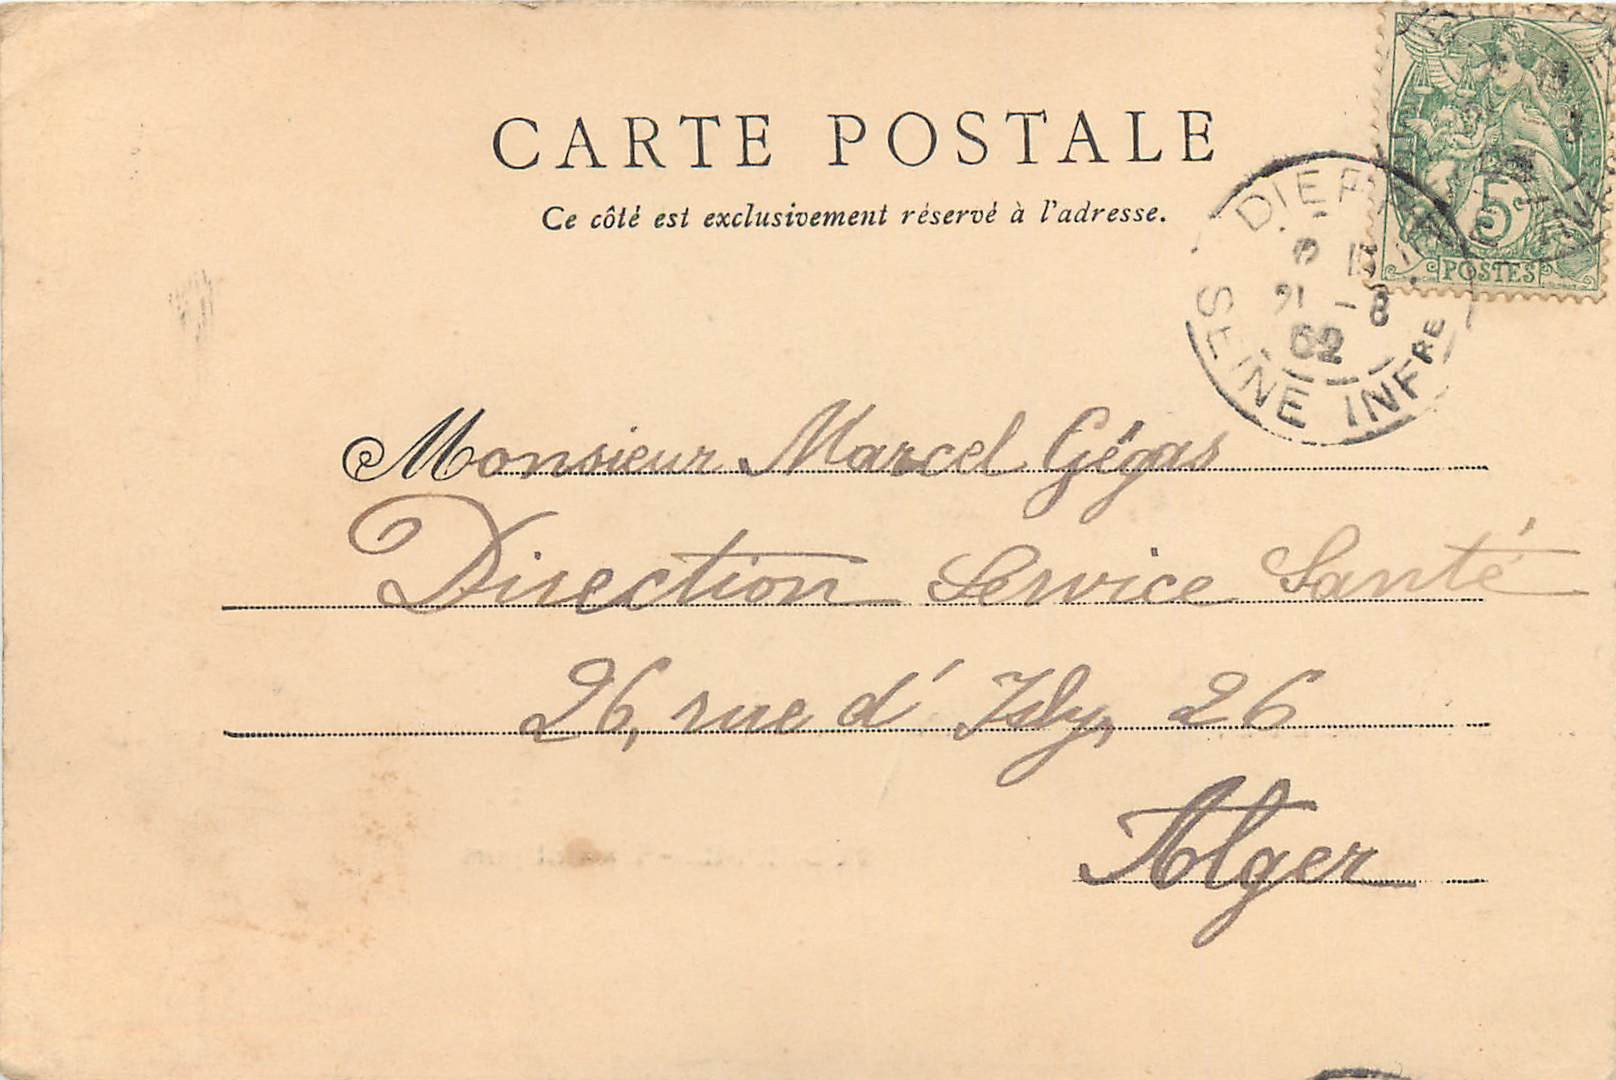 CARTE POSTALE
Ce côté est exclusivement réservé à l'adresse.
5
POSTES
DIEPPE
21 - 8
02
SEINE INFRE
Monsieur Marcel Gégas
Direction Service Santé
26, rue d'Isly, 26
Alger